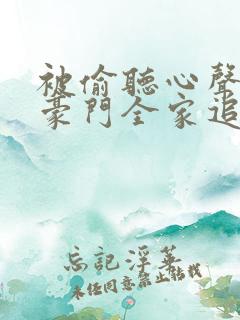 被偷聽心聲
豪門全家追
忘記浮華
未經同意禁止轉載